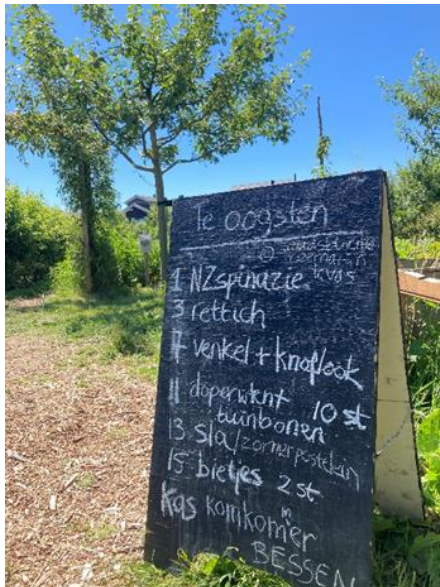 Te oogsten
1 NZspinazie
3 rettich
7 venkel + knoflook
11 doperwtent 10 st
tuinbonen
13 sla/zomerpostelein
15 bietjes 2 st
Kas komkommer
BESSEN